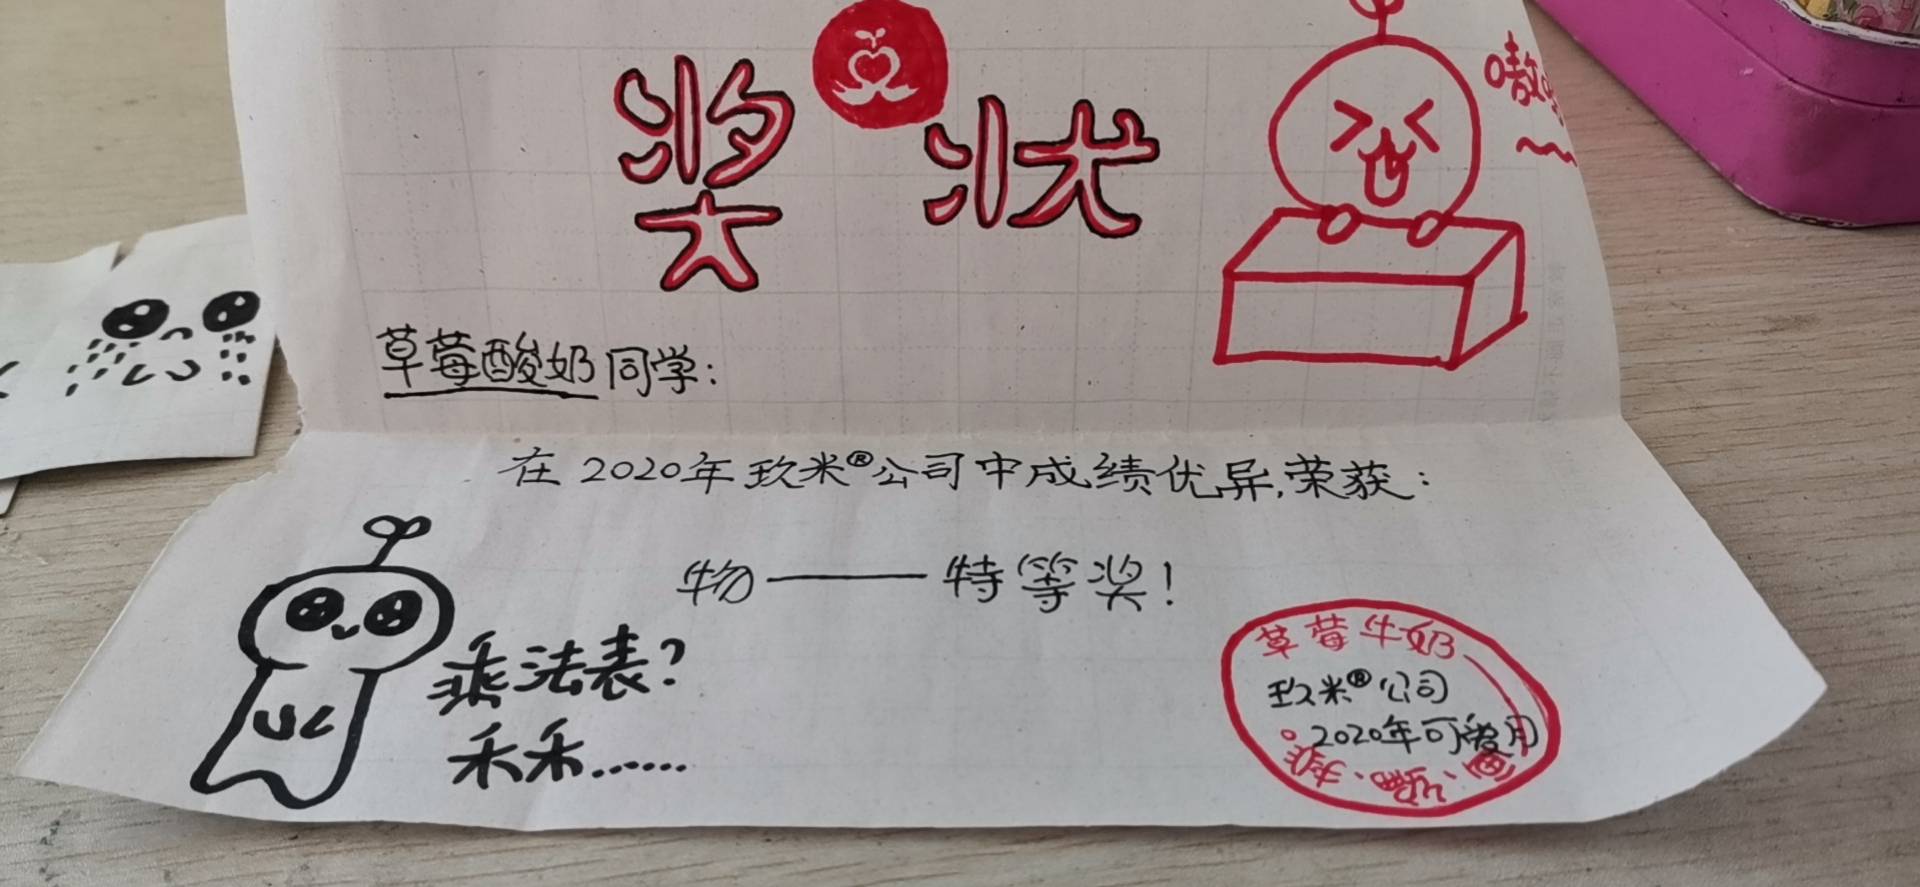 奖状
嗷
草莓酸奶同学:
在2020年玖米®公司中成绩优异,荣获:
物——特等奖!
乘法表?
禾禾......
草莓牛奶
玖米®公司
2020年可爱月